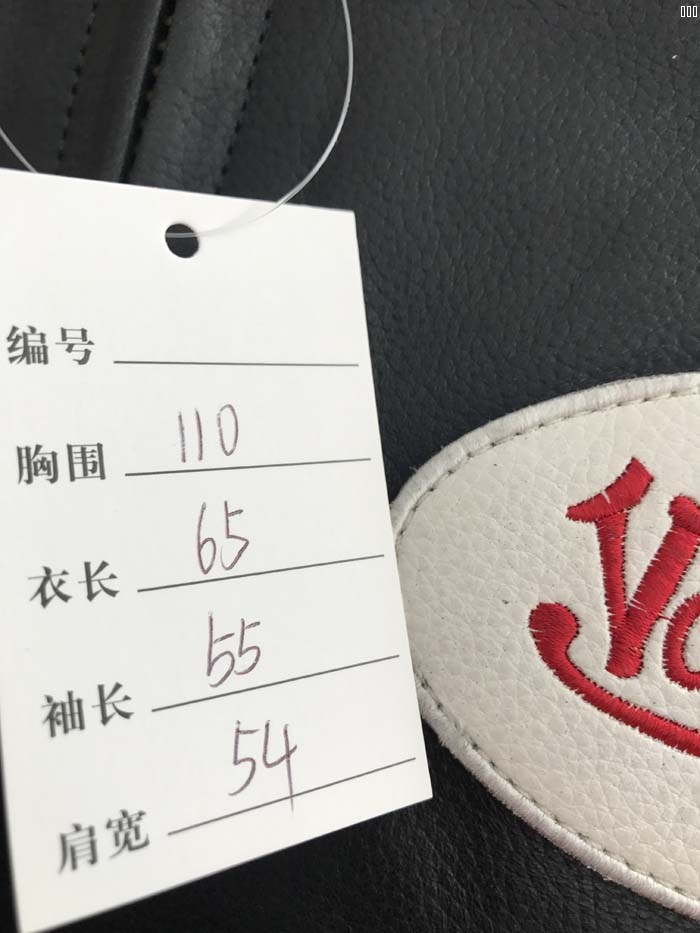 编号
胸围 110
衣长 65
袖长 55
肩宽 54